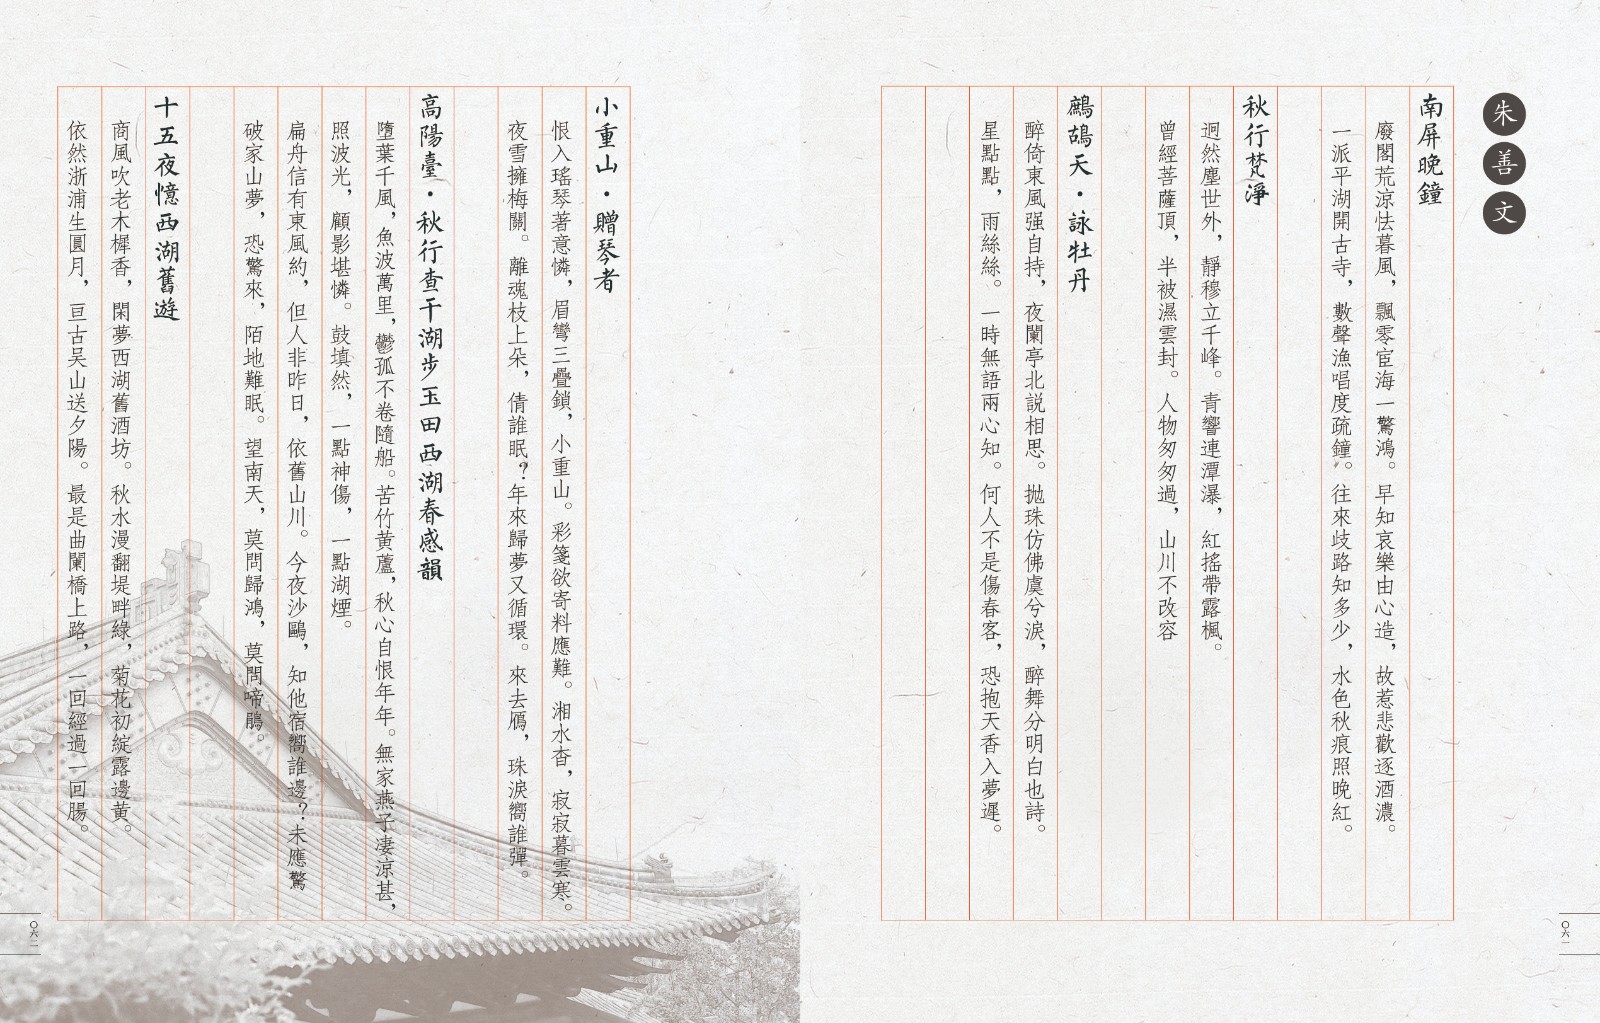 朱善文
南屏晚鐘
廢閣荒涼怯暮風，飄零宦海一驚鴻。早知哀樂由心造，故惹悲歡逐酒濃。
一派平湖開古寺，數聲漁唱度疏鐘。往來歧路知多少，水色秋痕照晚紅。
秋行梵淨
迥然塵世外，靜穆立千峰。青響連潭瀑，紅搖帶露楓。
曾經菩薩頂，半被濕雲封。人物匆匆過，山川不改容
鷓鴣天·詠牡丹
醉倚東風强自持，夜闌亭北説相思。拋珠仿佛虞兮淚，醉舞分明白也詩。
星點點，雨絲絲。一時無語兩心知。何人不是傷春客，恐抱天香入夢遲。
〇六一
小重山·贈琴者
恨入瑤琴著意憐，眉彎三疊鎖，小重山。彩箋欲寄料應難。湘水杳，寂寂暮雲寒。
夜雪擁梅關。離魂枝上朵，倩誰眠？年來歸夢又循環。來去鴈，珠淚嚮誰彈。
高陽臺·秋行查干湖步玉田西湖春感韻
墮葉千風，魚波萬里，鬱孤不卷隨船。苦竹黄蘆，秋心自恨年年。無家燕子凄涼甚，
照波光，顧影堪憐。鼓填然，一點神傷，一點湖煙。
扁舟信有東風約，但人非昨日，依舊山川。今夜沙鷗，知他宿嚮誰邊？未應驚
破家山夢，恐驚來，陌地難眠。望南天，莫問歸鴻，莫問啼鵑。
十五夜憶西湖舊遊
商風吹老木樨香，閑夢西湖舊酒坊。秋水漫翻堤畔綠，菊花初綻露邊黄。
依然浙浦生圓月，亘古吴山送夕陽。最是曲闌橋上路，一回經過一回腸。
〇六二